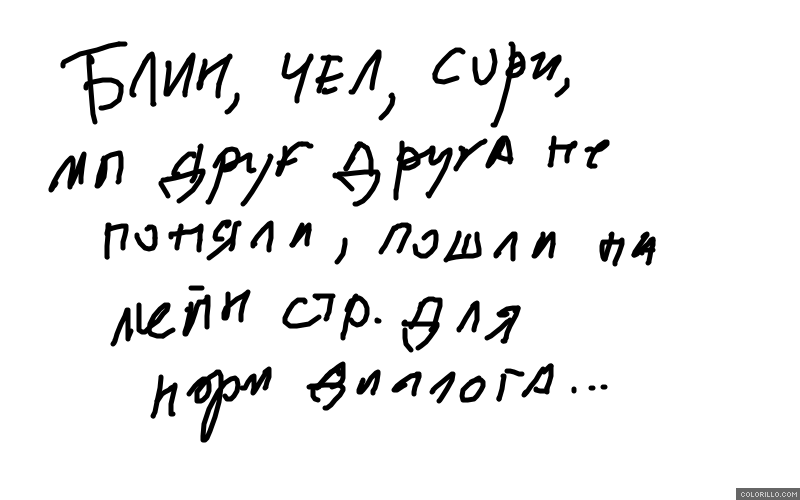 Блин, чел, сири,
мп друг друга не
поняли, пошли на
мейн стр. для
норм диалога...
COLORILLO.COM